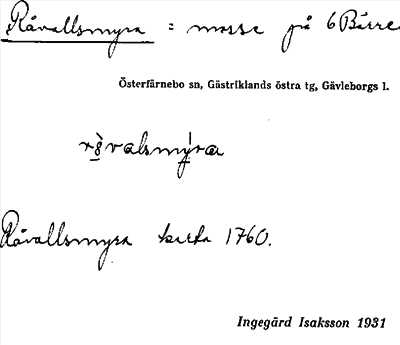 Råvallsmyra = mosse på 6 Bärre
Österfärnebo sn, Gästriklands östra tg, Gävleborgs l.
Råvallsmyra karta 1760.
Ingegärd Isaksson 1931